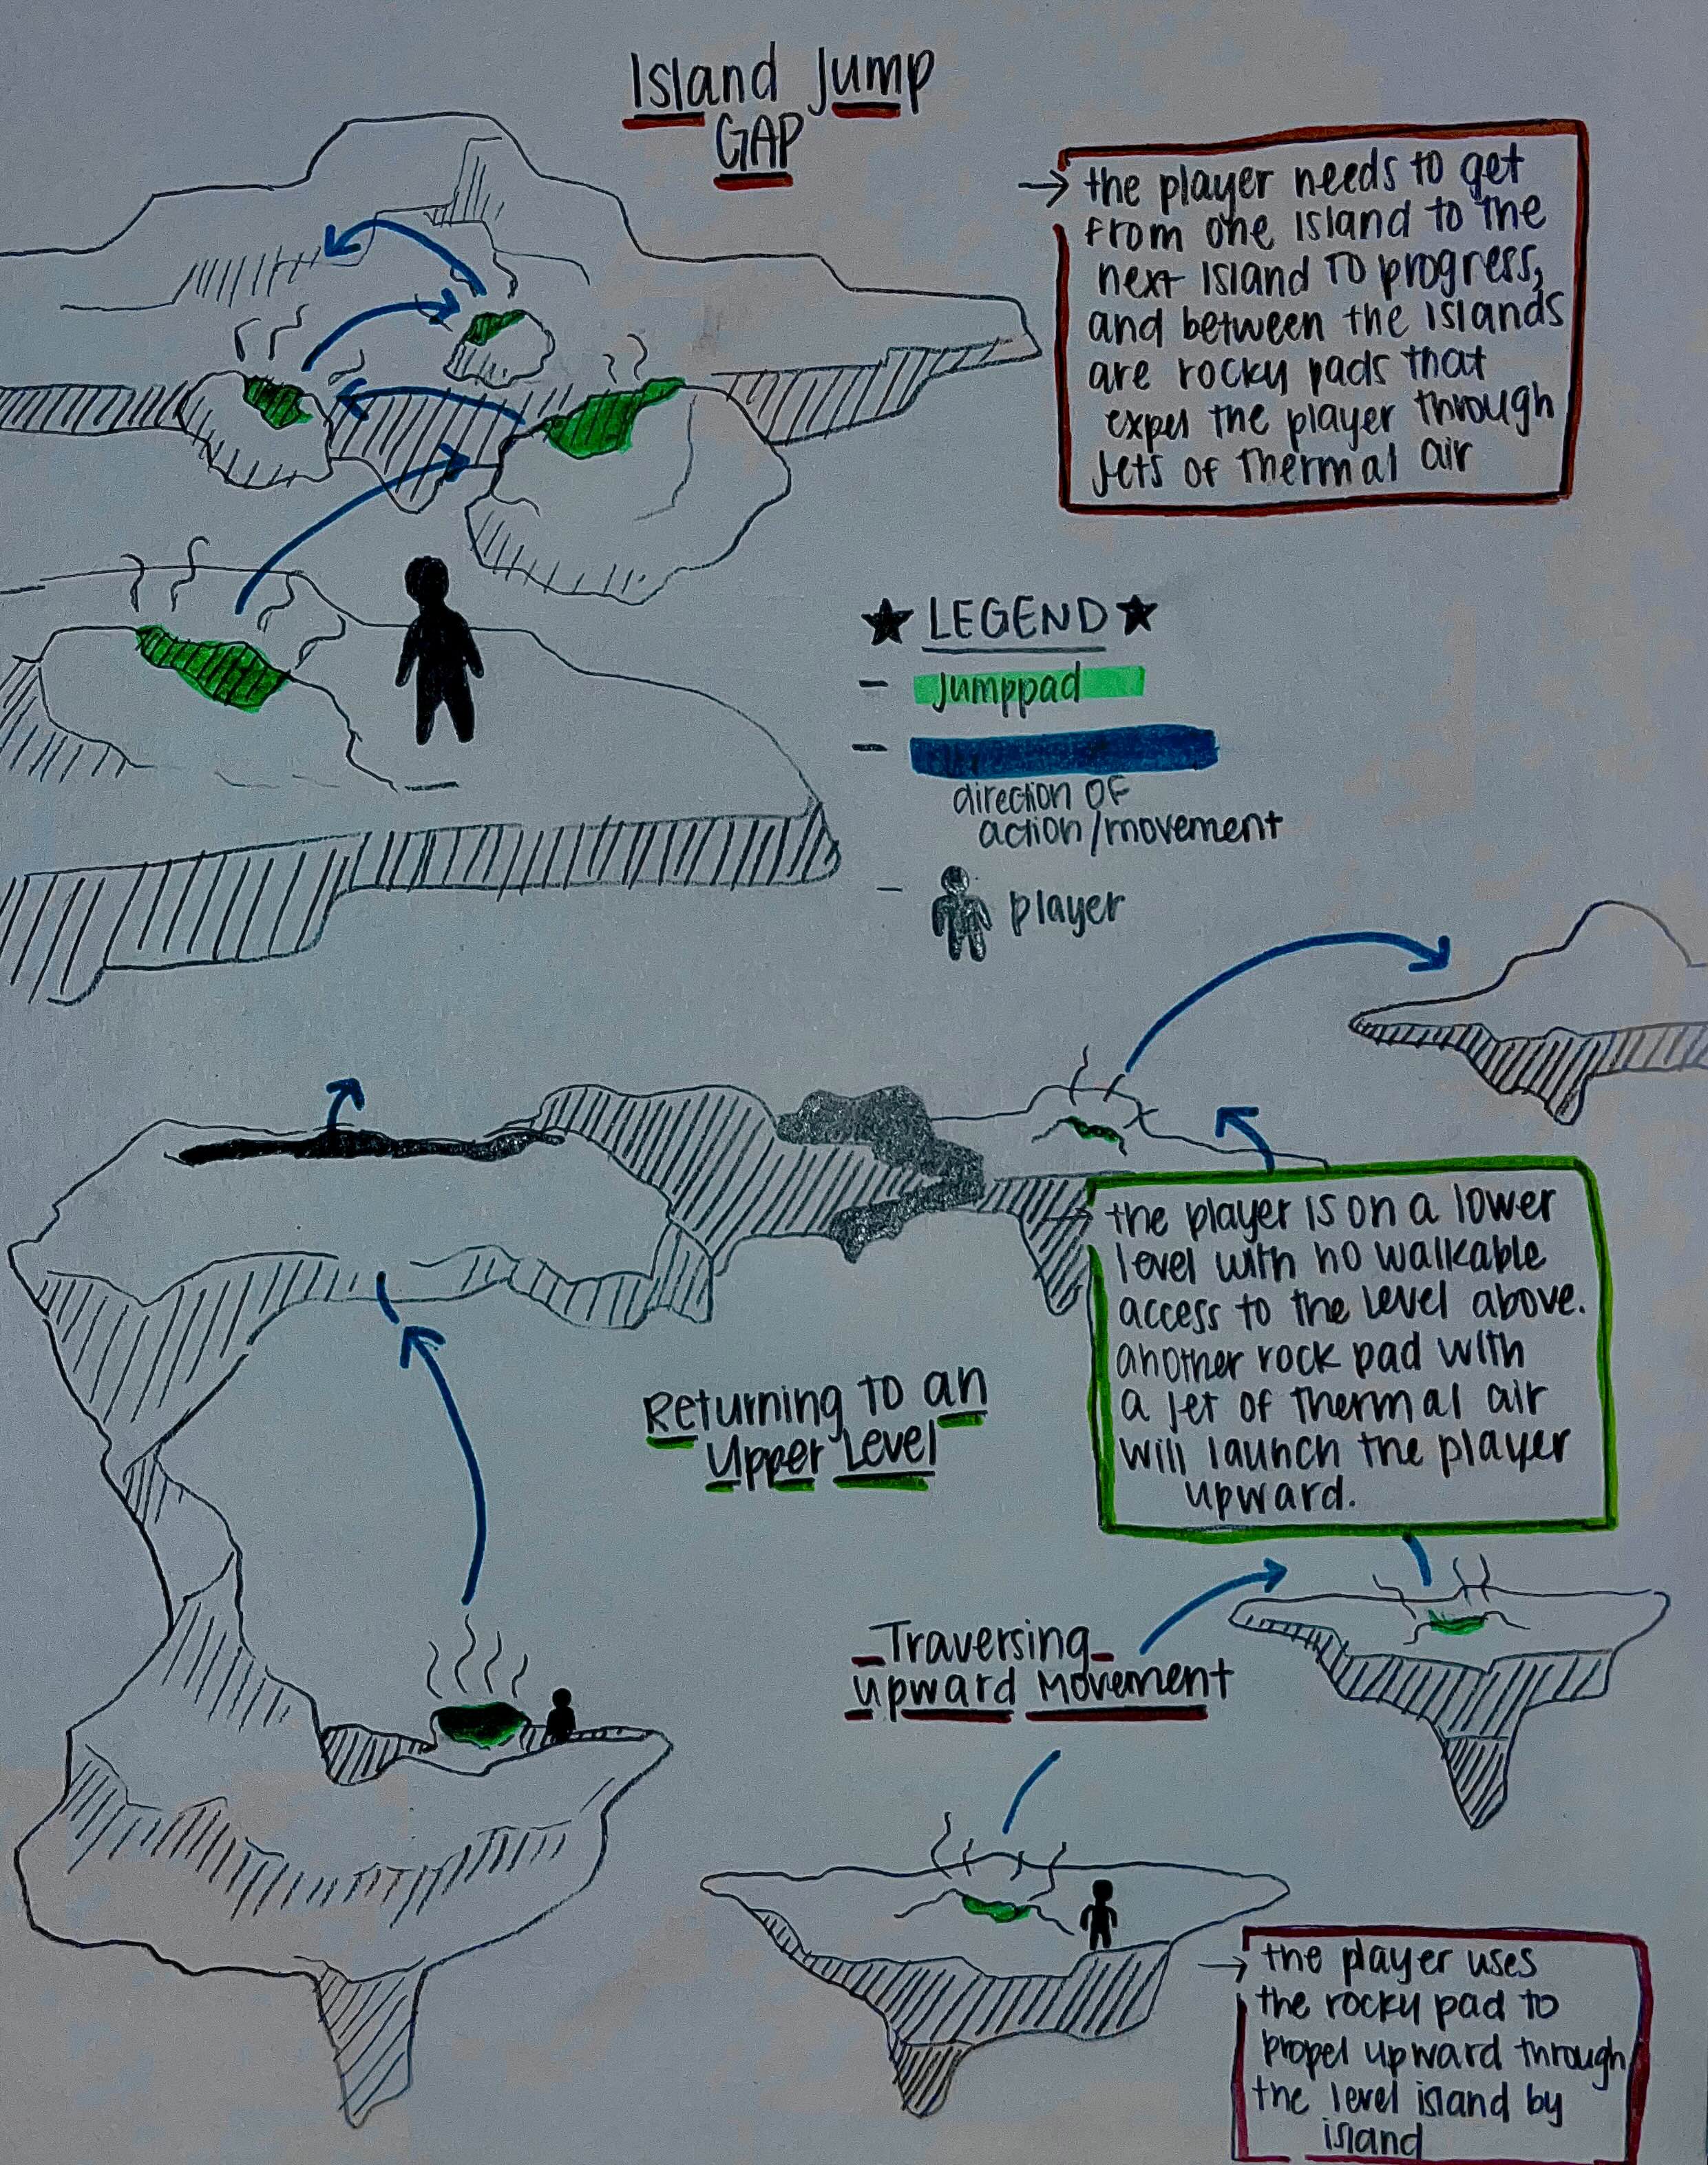 Island Jump
GAP
→ the player needs to get
from one island to the
next island to progress,
and between the islands
are rocky pads that
expel the player through
jets of thermal air
★ LEGEND ★
- Jumppad
- direction of
action/movement
- player
the player is on a lower
level with no walkable
access to the level above.
another rock pad with
a jet of thermal air
will launch the player
upward.
Returning to an
Upper Level
Traversing
upward movement
→ the player uses
the rocky pad to
propel upward through
the level island by
island